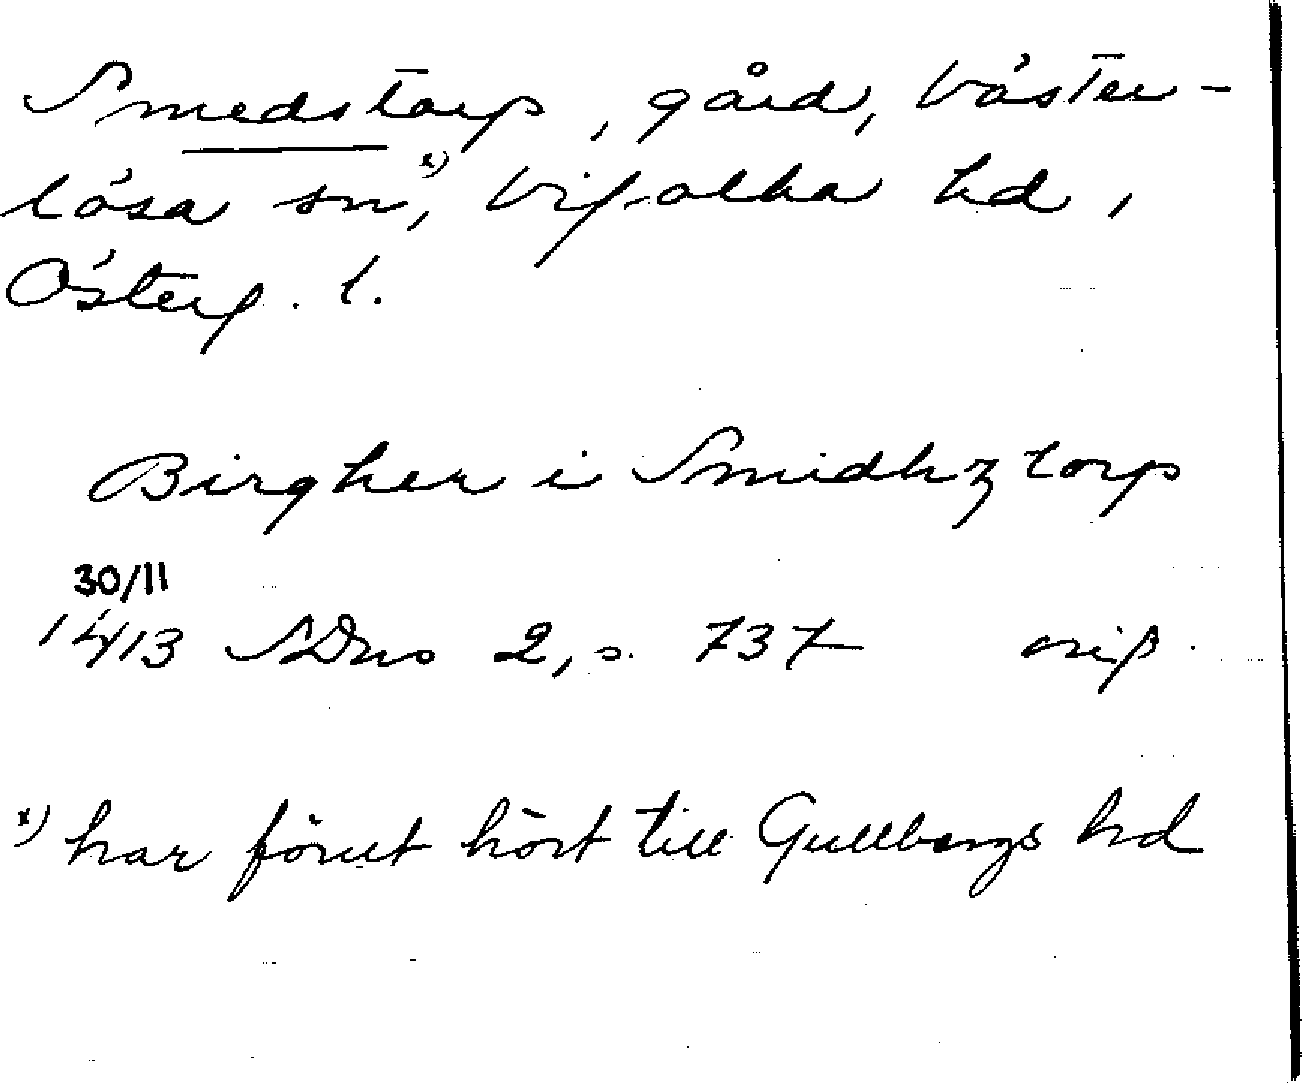 Smedstorp, gård, Väster-
lösa sn,x) Vifolka hd,
Österg. l.
Birgher i Smidhztorp
30/11
1413 SDns 2, s. 737 orig.
x) har förut hört till Gullbergs hd